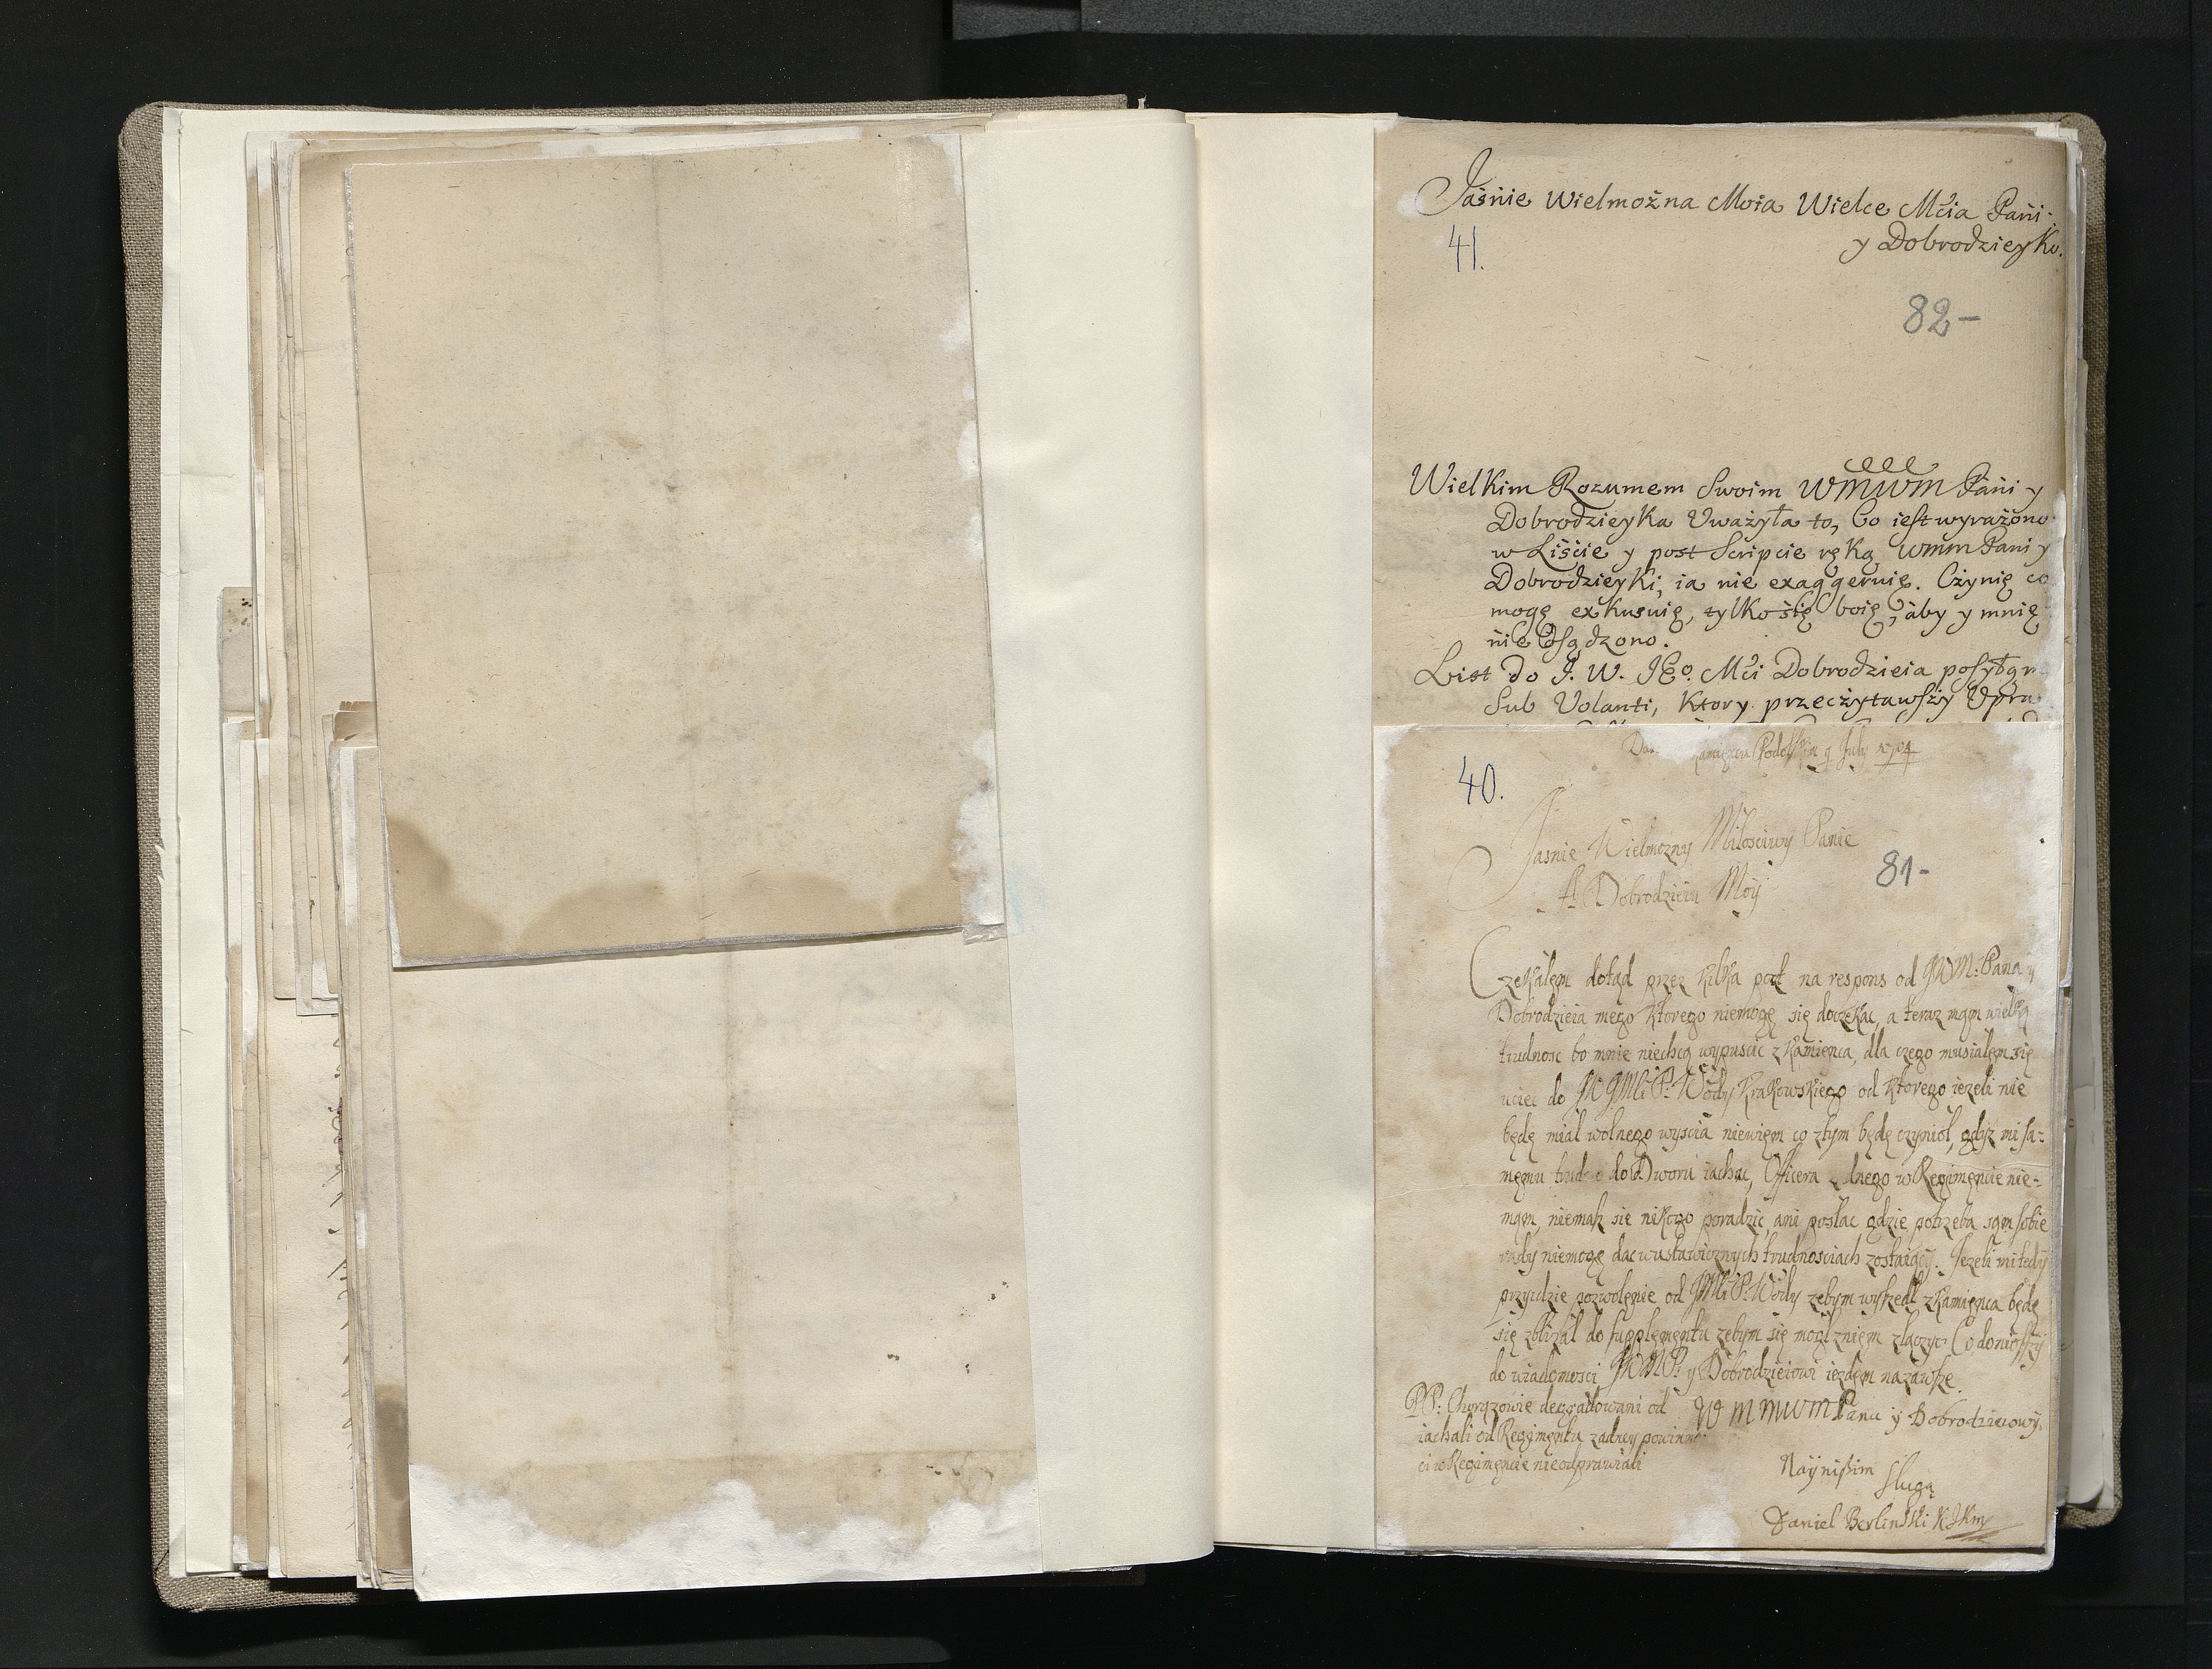 Jaśnie Wielmożna Moia Wielce Mćia Pani
y Dobrodzieyko.
41.
82-
Wielkim Rozumem Swoim WMWM Pani y
Dobrodzieyka Uważyła to, Co iest wyrażono
w Liście y post Scripcie ręką WMM Pani y
Dobrodzieyki, ia nie exaggeruię. Czynię co
mogę exkusuię, tylko się boię, aby y mnię
nie Osądzono.
List do J. W. JEo. Mći Dobrodzieia posyłam
Sub Volanti, Ktory przeczytawszy Upra
Podol 9 July 1704
40.
Jasnie Wielmozny Miłosciwy Panie
A Dobrodzieiu Moy
81-
Czekałem dotąd przez kilka poczt na respons od JWM: Pana y
Dobrodzieia mego ktorego niemogę się doczekac, a teraz mam wielką
trudnosc bo mnie niechcą wypuscic z kamienca, dla czego musiałem się
uciec do JW JMCi P: Wdy Krakowskiego od ktorego iezeli nie
będę miał wolnego wyscia niewiem co ztym będę czynioł, gdyz mi sa-
memu do Dworu iachac, Officera dnego w Regimencie nie-
mam, niemasz się nikogo poradzic, ani posłac gdzie potrzeba sam sobie
rady niemogę dac wustawicznych trudnosciach zostaiący. Jezeli mi tedy
przyidzie pozwolenie od JMCi P: Wdy zebym wyszedł z kamienca będę
się zblizał do supplementu zebym się mogł zniem złączyc Co doniosszy
do wiadomosci JWMP: y Dobrodzieiowi iezdem nazawsze.
PS: Chorązowie degradowani od
iachali od Regimentu zadney powinno
ci w Regimencie nieodprawiali
WMMWM Panu y Dobrodzieiowy,
Nayniszim
sługą
Daniel Berlinski KJKm